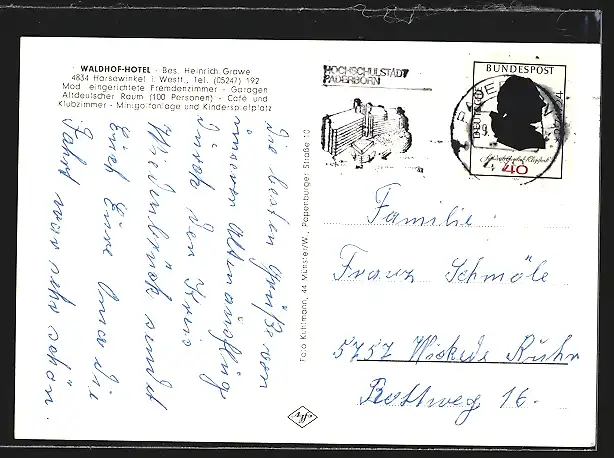 WALDHOF-HOTEL - Bes. Heinrich Grawe
4834 Harsewinkel i. Westf., Tel. (05247) 192
Mod. eingerichtete Fremdenzimmer - Garagen
Altdeutscher Raum (100 Personen) - Café und
Klubzimmer - Minigolfanlage und Kinderspielplatz
Die besten Grüße von
unserem Altenausflug
durch den Kreis
Wiedenbrück sendet
Euch Eure Oma die
Fahrt war sehr schön.
Foto Kuhlmann, 44 Münster/W., Papenburger Straße 10
HOCHSCHULSTADT
PADERBORN
DEUTSCHE BUNDESPOST
40
Familie
Franz Schmöle
5757 Wickede Ruhr
Rottweg 16.